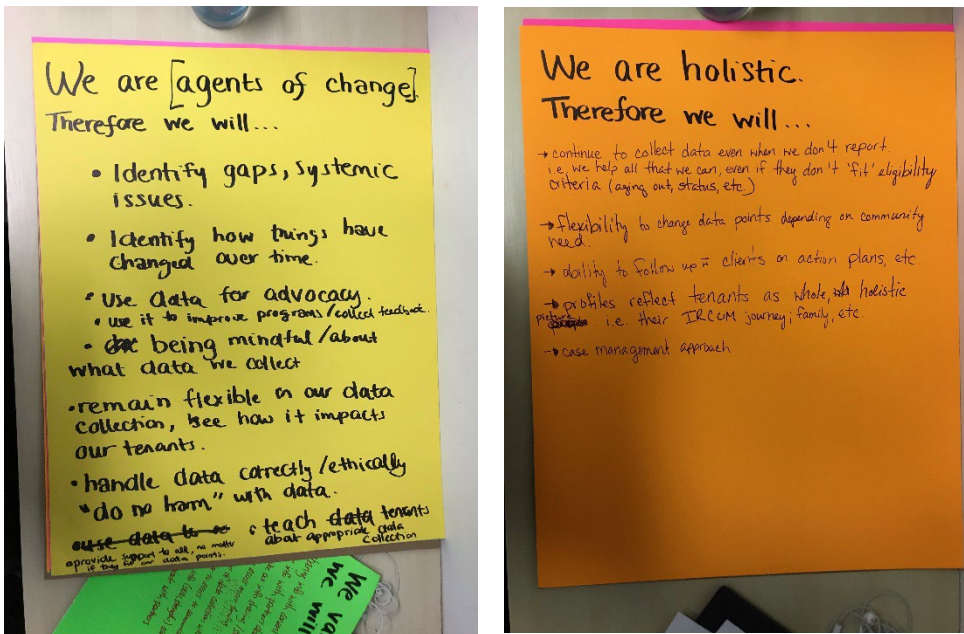 We are [agents of change].
Therefore we will...
• Identify gaps, systemic
issues.
• Identify how things have
changed over time.
• Use data for advocacy.
• use it to improve programs/collect feedback.
• being mindful/about
what data we collect
• remain flexible in our data
collection, see how it impacts
our tenants.
• handle data correctly/ethically
"do no harm" with data.
• use data to
• teach data tenants
about appropriate data
collection
provide support to all, no matter
if they fit our data points.
We va
we will
We are holistic.
Therefore we will...
→ continue to collect data even when we don't report.
i.e. we help all that we can, even if they don't 'fit' eligibility
criteria (aging out, status, etc.)
→ flexibility to change data points depending on community
need.
→ ability to follow up c̄ clients on action plans, etc.
→ profiles reflect tenants as whole, holistic
picture i.e. their IRCOM journey; family, etc.
→ case management approach